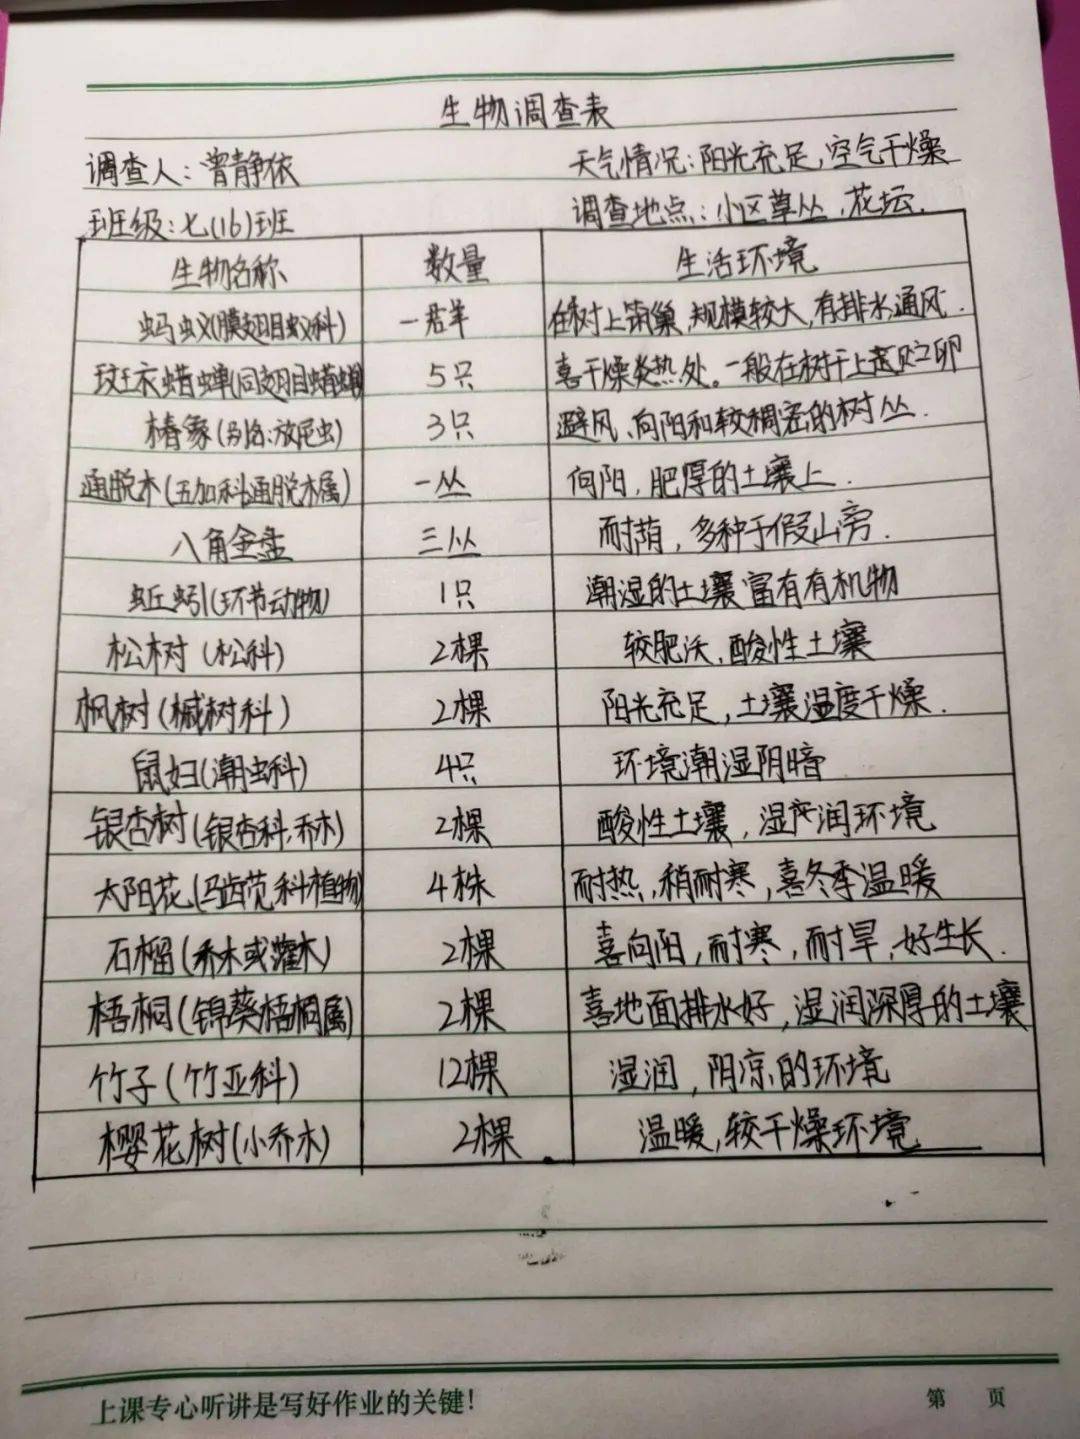 生物调查表
调查人：曾静依 天气情况：阳光充足，空气干燥
班级：七(16)班 调查地点：小区草丛，花坛.
生物名称 数量 生活环境
蚂蚁(膜翅目蚁科) 一群 在树上筑巢,规模较大,有排水通风.
斑衣蜡蝉(同翅目蜡蝉 5只 喜干燥炎热处。一般在树干上 贮卵
椿象(别名:放屁虫) 3只 避风、向阳和较稠密的树丛.
通脱木(五加科通脱木属) 一丛 向阳，肥厚的土壤上.
八角金盘 三丛 耐荫，多种于假山旁.
蚯蚓(环节动物) 1只 潮湿的土壤富有有机物
松树（松科） 2棵 较肥沃,酸性土壤
枫树(槭树科) 2棵 阳光充足，土壤湿度干燥.
鼠妇(潮虫科) 4只 环境潮湿阴暗
银杏树(银杏科,乔木) 2棵 酸性土壤，湿 润环境
太阳花(马齿苋科植物) 4株 耐热,稍耐寒,喜冬季温暖
石榴(乔木或灌木) 2棵 喜向阳,耐寒,耐旱,好生长.
梧桐(锦葵梧桐属) 2棵 喜地面排水好,湿润深厚的土壤
竹子(竹亚科) 12棵 湿润，阴凉的环境
樱花树(小乔木) 2棵 温暖,较干燥环境
上课专心听讲是写好作业的关键！ 第 页